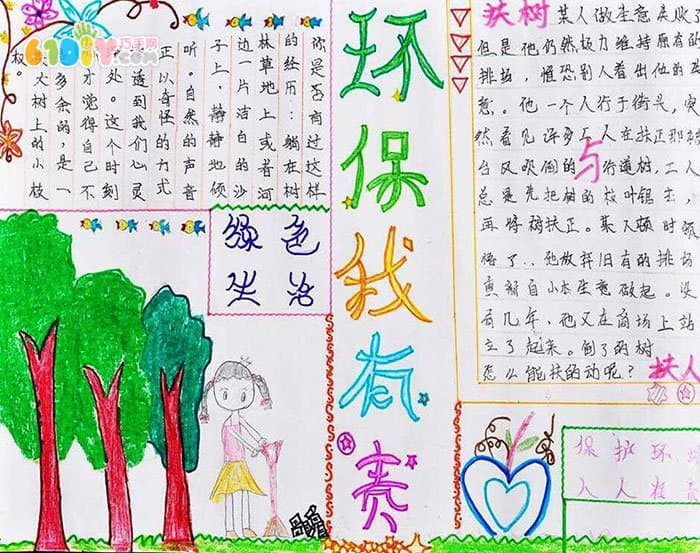 61DIY巧手网
你是否有过这样
的经历:躺在树
林草地上或者河
边一片洁白的沙
子上,静静地倾
听。自然的声音
正以奇怪的方式
透到我们心灵
处。这个时刻
才觉得自己不
多余的,是一
大树上的小枝
杈。
绿色
生活
环保我有责
扶树
与
扶人
某人做生意失败
但是他仍然极力维持原有的
排场,惟恐别人看出他的
意。他一个人行于街头,突
然看见许多工人在扶正那被
台风吹倒的行道树,工人
总是先把树的枝叶锯去,
再将树扶正。某人顿时领
悟了..他放弃旧有的排场
重新自小本生意做起。没
有几年、他又在商场上站
立了起来。倒了的树
怎么能扶的动呢?
保护环境
人人有